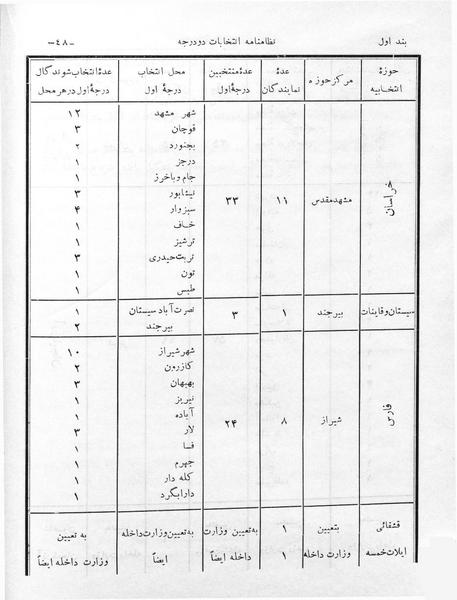 بند اول نظامنامه انتخابات دودرجه -٤٨-
حوزهٔ انتخابیه مرکز حوزه عدهٔ نمایندگان عدهٔ منتخبین درجهٔ اول محل انتخاب درجهٔ اول عدهٔ انتخاب شوندگان درجهٔ اول در هر محل
خراسان مشهد مقدس ۱۱ ۳۳ شهر مشهد ۱۲
قوچان ۳
بجنورد ۲
درجز ۱
جام و باخرز ۱
نیشابور ۳
سبزوار ۴
خاف ۱
ترشیز ۱
تربت حیدری ۳
تون ۱
طبس ۱
سیستان و قاینات بیرجند ۱ ۳ نصرت آباد سیستان ۱
بیرجند ۲
فارس شیراز ۸ ۲۴ شهر شیراز ۱۰
کازرون ۲
بهبهان ۳
نیریز ۱
آباده ۱
لار ۳
فسا ۱
جهرم ۱
کله دار ۱
دارابگرد ۱
قشقائی بتعیین ۱ به تعیین وزارت به تعیین وزارت داخله به تعیین
ایلات خمسه وزارت داخله ۱ داخله ایضاً ایضاً وزارت داخله ایضاً